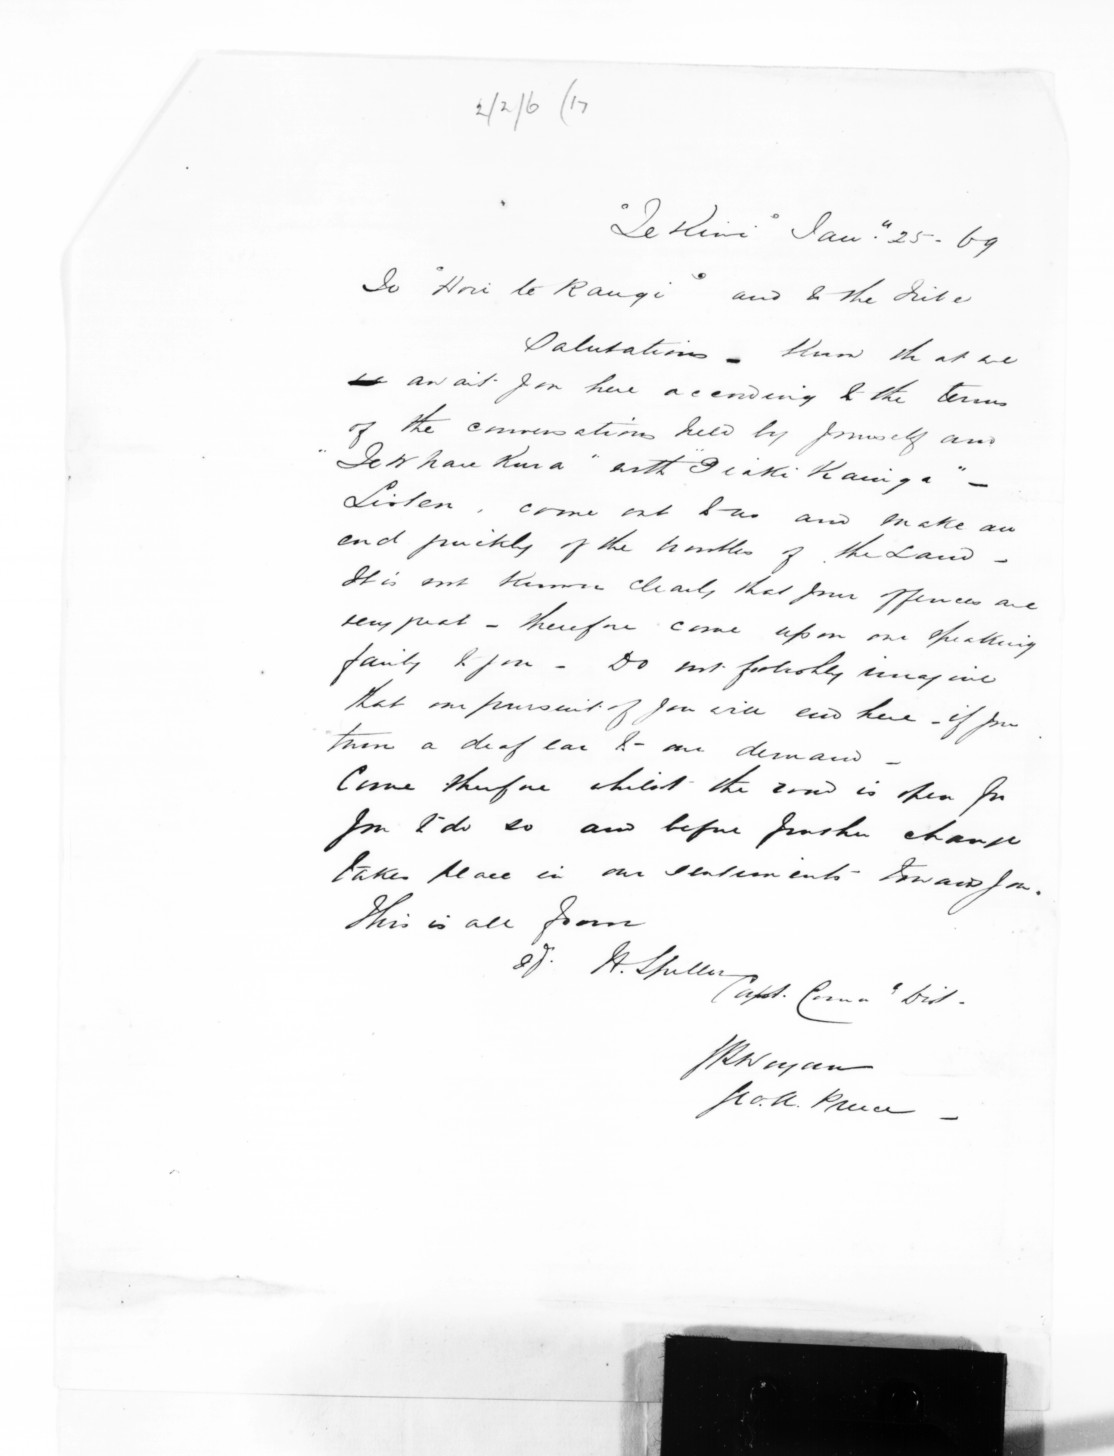 2/2/6 (17
"Te Kini" Jany 25 - 69
To "Hori te Rangi" and to the Tribe
Salutations - Know that we
await you here according to the terms
of the conversations held by yourself and
"Te Whare Kura" with "Tiaki Kainga" -
Listen, come out to us and make an
end quickly of the troubles of the Land -
It is not known clearly that your offences are
very great - therefore come upon our speaking
fairly to you - Do not foolishly imagine
that our pursuit of you will end here - if you
turn a deaf ear to our demand -
Come therefore whilst the road is open for
you to do so and before further change
takes place in our sentiments toward you.
This is all from
sd. H. Spiller
Capt. Comg Dist -
Geo. A. Preece -